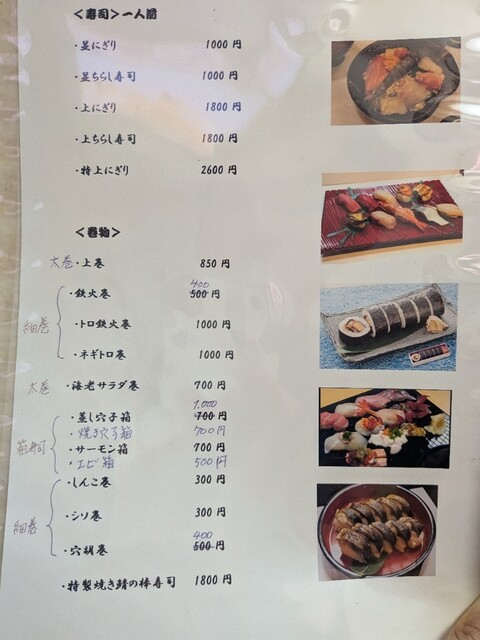 ＜寿司＞一人前
・並にぎり 1000 円
・並ちらし寿司 1000 円
・上にぎり 1800 円
・上ちらし寿司 1800 円
・特上にぎり 2600 円
＜巻物＞
太巻・上巻 850 円
400
・鉄火巻 500 円
細巻 ・トロ鉄火巻 1000 円
・ネギトロ巻 1000 円
太巻 ・海老サラダ巻 700 円
1,000
・蒸し穴子箱 700 円
・焼き穴子箱 700円
箱寿司 ・サーモン箱 700 円
・エビ箱 500円
・しんこ巻 300 円
細巻 ・シソ巻 300 円
400
・穴胡巻 500 円
・特製焼き鯖の棒寿司 1800 円